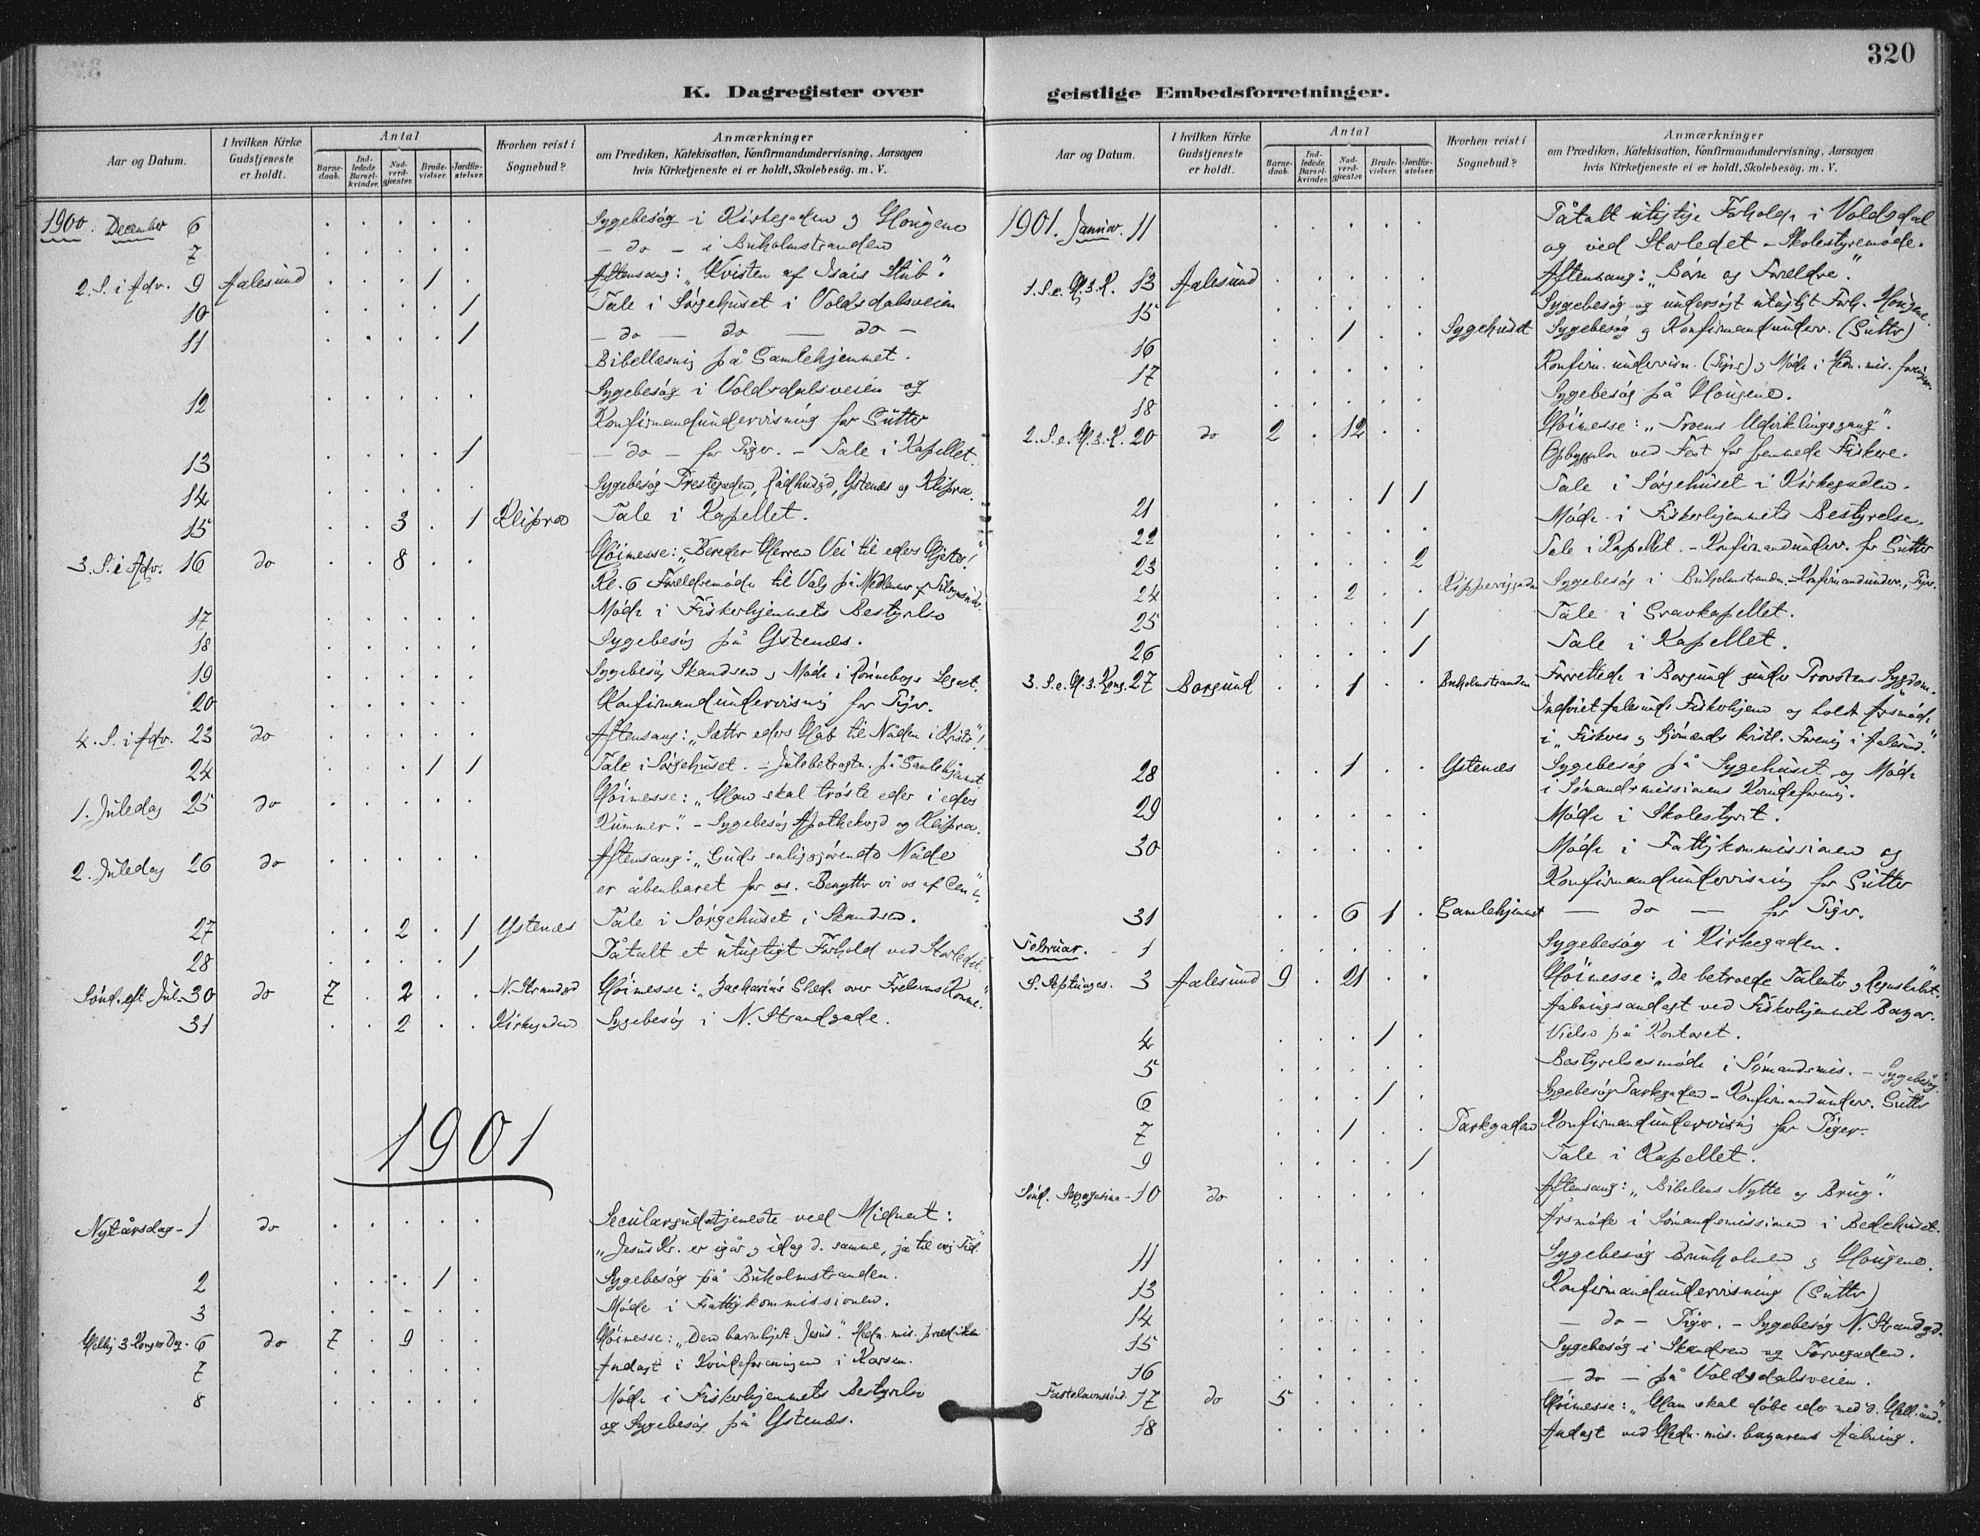 320
K. Dagregister over geistlige Embedsforretninger.
Aar og Datum.
I hvilken Kirke Gudstjeneste er holdt.
Antal
Barne-daab.
Ind-ledede Barsel-kvinder.
Nad-verd-gjæster.
Brude-vielser.
Jordfæ-stelser.
Hvorhen reist i Sognebud?
Anmærkninger
om Prædiken, Katekisation, Konfirmandundervisning, Aarsagen
hvis Kirketjeneste ei er holdt, Skolebesøg. m. V.
1900. December 6 Sygebesøg i Kirkegaden og Haugene
7 — do — i Buholmstranden
2. S. i Adv. 9 Aalesund 1 Aftensang: „Kvisten af Isais Stub".
10 1 Tale i Sørgehuset i Voldsdalsveien
11 1 — do — do — do —
Bibellæsnig på Gamlehjemmet.
12 Sygebesøg i Voldsdalsveien og
Konfirmandundervisning for Gutter
13 1 — do — for Piger. — Tale i Kapellet.
14 Sygebesøg Prestegaden, Rådhusgd, Ystenæs og Klipra.
15 3 1 Klipra Tale i Kapellet.
3. S. i Adv. 16 do 8 Høimesse: „Bereder Herren Vei til eders Hjerter!"
Kl. 6 Forældremøde til Valg på Medlemmer af Tilsynsudv.
17 Møde i Fiskerhjemmets Bestyrelse
18 Sygebesøg på Ystenæs.
19 Sygebesøg Skandsen og Møde i Rønnebergs Legat.
20 Konfirmandundervisnig for Piger.
4. S. i Adv. 23 do Aftensang: „Sætter eders Håb til Nåden i Kristo"!
24 1 1 Tale i Sørgehuset. — Julebetragtn. på Gamlehjemmet.
1. Juledag 25 do Høimesse: „Han skal trøste eder i eders
Kummer". — Sygebesøg Apothekergd og Klipra.
2. Juledag 26 do Aftensang: „Guds saliggjørende Nåde
er åbenbaret for os. Benytter vi os af den"?
27 2 1 Ystenæs Tale i Sørgehuset i Skandsen.
28 1 Påtalt et utugtigt Forhold ved Storledet.
Sønd. eft. Jul. 30 do 7 2 N. Strandgd Høimesse: „Zacharius Glede over Frelserens Komme."
31 2 Kirkegaden Sygebesøg i N. Strandgade.
1901
Nytårsdag - 1 do Seculargudstjeneste ved Midnat:
„Jesus Kr. er igår og idag d. samme, ja til evig Tid."
2 1 Sygebesøg på Buholmstranden.
3 Møde i Fattigkommissionen.
Hellig 3 Konger Dg. 6 do 7 9 Høimesse: „Den barnlige Jesus". Hedn. mis. prædiken
7 Andagt i Kvindeforeningen i Korsen.
8 Møde i Fiskerhjemmets Bestyrelse
og Sygebesøg på Ystenæs.
Aar og Datum.
I hvilken Kirke Gudstjeneste er holdt.
Antal
Barne-daab.
Ind-ledede Barsel-kvinder.
Nad-verd-gjæster.
Brude-vielser.
Jordfæ-stelser.
Hvorhen reist i Sognebud?
Anmærkninger
om Prædiken, Katekisation, Konfirmandundervisning, Aarsagen
hvis Kirketjeneste ei er holdt, Skolebesøg. m. V.
1901. Januar. 11 Påtalt utugtige Forhold i Voldsdal
og ved Storledet — Skolestyremøde.
1. S. e. H. 3. K. 13 Aalesund Aftensang: „Børn og Forældre".
15 Sygebesøg og undersøgt utugtigt Forh. Haugene.
16 1 Sygehuset Sygebesøg og Konfirmandunderv. (Gutter)
17 Konfirm. undervisn. (Piger) og Møde i Hedn. mis. foreningen.
18 Sygebesøg på Haugene.
2. S. e. H. 3. K. 20 do 2 12 Høimesse: „Troens Udviklingsgang".
Opbyggelse ved Fest for fremmede Fiskere.
21 1 1 Tale i Sørgehuset i Kirkegaden.
22 Møde i Fiskerhjemmets Bestyrelse.
23 2 Tale i Kapellet. — Konfirmandunderv. for Gutter
24 2 Kippervigaden Sygebesøg i Buholmstranden. — Konfirmandunderv., Piger.
25 1 Tale i Gravkapellet.
26 1 Tale i Kapellet.
3. S. e. H. 3. Kong. 27 Borgund 1 Buholmstranden Forrettede i Borgund under Provstens Sygdom.
Indviet Aalesunds Fiskerhjem og holdt Årsmøde
i „Fiskeres og Sjømænds kristl. Forenig i Aalesund."
28 1 Ystenæs Sygebesøg på Sygehuset og Møde
i Sømandsmissionens Kvindeforenig.
29 Møde i Skolestyret.
30 Møde i Fattigkommissionen og
Konfirmandundervisnig for Gutter
31 6 1 Gamlehjemmet — do — for Piger.
Februar. - 1 Sygebesøg i Kirkegaden.
S. Septuages. 3 Aalesund 9 21 Høimesse: „De betroede Talenter og Regnskabet."
Aabningsandagt ved Fiskerhjemmets Bazar.
4 1 Vielse på Kontoret.
5 Bestyrelsesmøde i Sømandsmis. — Sygebesøg.
6 1 Sygebesøg Parkgaden — Konfirmandunderv. Gutter
7 1 Parkgaden Konfirmandundervisnig for Piger.
9 1 Tale i Kapellet.
Sønd. Sexagesima - 10 do Aftensang: „Bibelens Nytte og Brug."
Årsmøde i Sømandsmissionen i Bedehuset.
11 Sygebesøg Brunholmen og Haugene.
13 Konfirmandundervisning (Gutter)
14 — do — Piger. — Sygebesøg N. Strandgd.
15 Sygebesøg i Skandsen og Farvegaden.
16 — do — på Voldsdalsveien.
Fastelavnssønd. 17 do 5 Høimesse: „Han skal døbe eder med d. Hell. ånd."
18 Andagt ved Hedn. mis. bazarens Aabning.